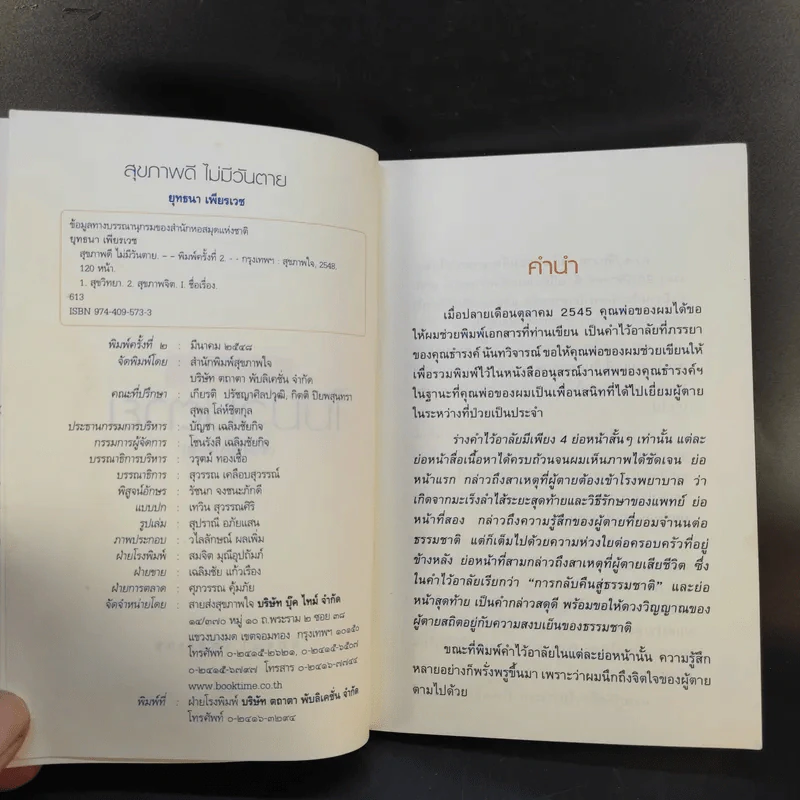 สุขภาพดี ไม่มีวันตาย
ยุทธนา เพียรเวช
ข้อมูลทางบรรณานุกรมของสำนักหอสมุดแห่งชาติ
ยุทธนา เพียรเวช
สุขภาพดี ไม่มีวันตาย. -- พิมพ์ครั้งที่ 2. -- กรุงเทพฯ : สุขภาพใจ, 2548.
120 หน้า.
1. สุขวิทยา. 2. สุขภาพจิต. I. ชื่อเรื่อง.
613
ISBN 974-409-573-3
พิมพ์ครั้งที่ ๒ : มีนาคม ๒๕๔๘
จัดพิมพ์โดย : สำนักพิมพ์สุขภาพใจ
บริษัท ตถาตา พับลิเคชั่น จำกัด
คณะที่ปรึกษา : เกียรติ ปรัชญาศิลปวุฒิ, กิตติ ปิยพสุนทรา
สุพล โล่ห์ชิตกุล
ประธานกรรมการบริหาร : บัญชา เฉลิมชัยกิจ
กรรมการผู้จัดการ : โชนรังสี เฉลิมชัยกิจ
บรรณาธิการบริหาร : วรุตม์ ทองเชื้อ
บรรณาธิการ : สุวรรณ เคลือบสุวรรณ์
พิสูจน์อักษร : รัชนก จงชนะภักดี
แบบปก : เทวิน สุวรรณศิริ
รูปเล่ม : สุปราณี อภัยแสน
ภาพประกอบ : วไลลักษณ์ ผลเพิ่ม
ฝ่ายโรงพิมพ์ : สมจิต มุณีอุปถัมภ์
ฝ่ายขาย : เฉลิมชัย แก้วเรือง
ฝ่ายการตลาด : ศุภวรรณ คุ้มภัย
จัดจำหน่ายโดย : สายส่งสุขภาพใจ บริษัท บุ๊ค ไทม์ จำกัด
๑๔/๓๗๐ หมู่ ๑๐ ถ.พระราม ๒ ซอย ๓๘
แขวงบางมด เขตจอมทอง กรุงเทพฯ ๑๐๑๕๐
โทรศัพท์ ๐-๒๔๑๕-๒๖๒๑, ๐-๒๔๑๕-๖๕๐๗
๐-๒๔๑๕-๖๗๙๗ โทรสาร ๐-๒๔๑๖-๗๗๔๔
www.booktime.co.th
พิมพ์ที่ : ฝ่ายโรงพิมพ์ บริษัท ตถาตา พับลิเคชั่น จำกัด
โทรศัพท์ ๐-๒๔๑๖-๓๒๙๔
คำนำ
เมื่อปลายเดือนตุลาคม 2545 คุณพ่อของผมได้ขอ
ให้ผมช่วยพิมพ์เอกสารที่ท่านเขียน เป็นคำไว้อาลัยที่ภรรยา
ของคุณธำรงค์ นันทวิจารณ์ ขอให้คุณพ่อของผมช่วยเขียนให้
เพื่อรวมพิมพ์ไว้ในหนังสืออนุสรณ์งานศพของคุณธำรงค์ฯ
ในฐานะที่คุณพ่อของผมเป็นเพื่อนสนิทที่ได้ไปเยี่ยมผู้ตาย
ในระหว่างที่ป่วยเป็นประจำ
ร่างคำไว้อาลัยมีเพียง 4 ย่อหน้าสั้นๆ เท่านั้น แต่ละ
ย่อหน้าสื่อเนื้อหาได้ครบถ้วนจนผมเห็นภาพได้ชัดเจน ย่อ
หน้าแรก กล่าวถึงสาเหตุที่ผู้ตายต้องเข้าโรงพยาบาล ว่า
เกิดจากมะเร็งลำไส้ระยะสุดท้ายและวิธีรักษาของแพทย์ ย่อ
หน้าที่สอง กล่าวถึงความรู้สึกของผู้ตายที่ยอมจำนนต่อ
ธรรมชาติ แต่ก็เต็มไปด้วยความห่วงใยต่อครอบครัวที่อยู่
ข้างหลัง ย่อหน้าที่สามกล่าวถึงสาเหตุที่ผู้ตายเสียชีวิต ซึ่ง
ในคำไว้อาลัยเรียกว่า “การกลับคืนสู่ธรรมชาติ” และย่อ
หน้าสุดท้าย เป็นคำกล่าวสดุดี พร้อมขอให้ดวงวิญญาณของ
ผู้ตายสถิตอยู่กับความสงบเย็นของธรรมชาติ
ขณะที่พิมพ์คำไว้อาลัยในแต่ละย่อหน้านั้น ความรู้สึก
หลายอย่างก็พรั่งพรูขึ้นมา เพราะว่าผมนึกถึงจิตใจของผู้ตาย
ตามไปด้วย